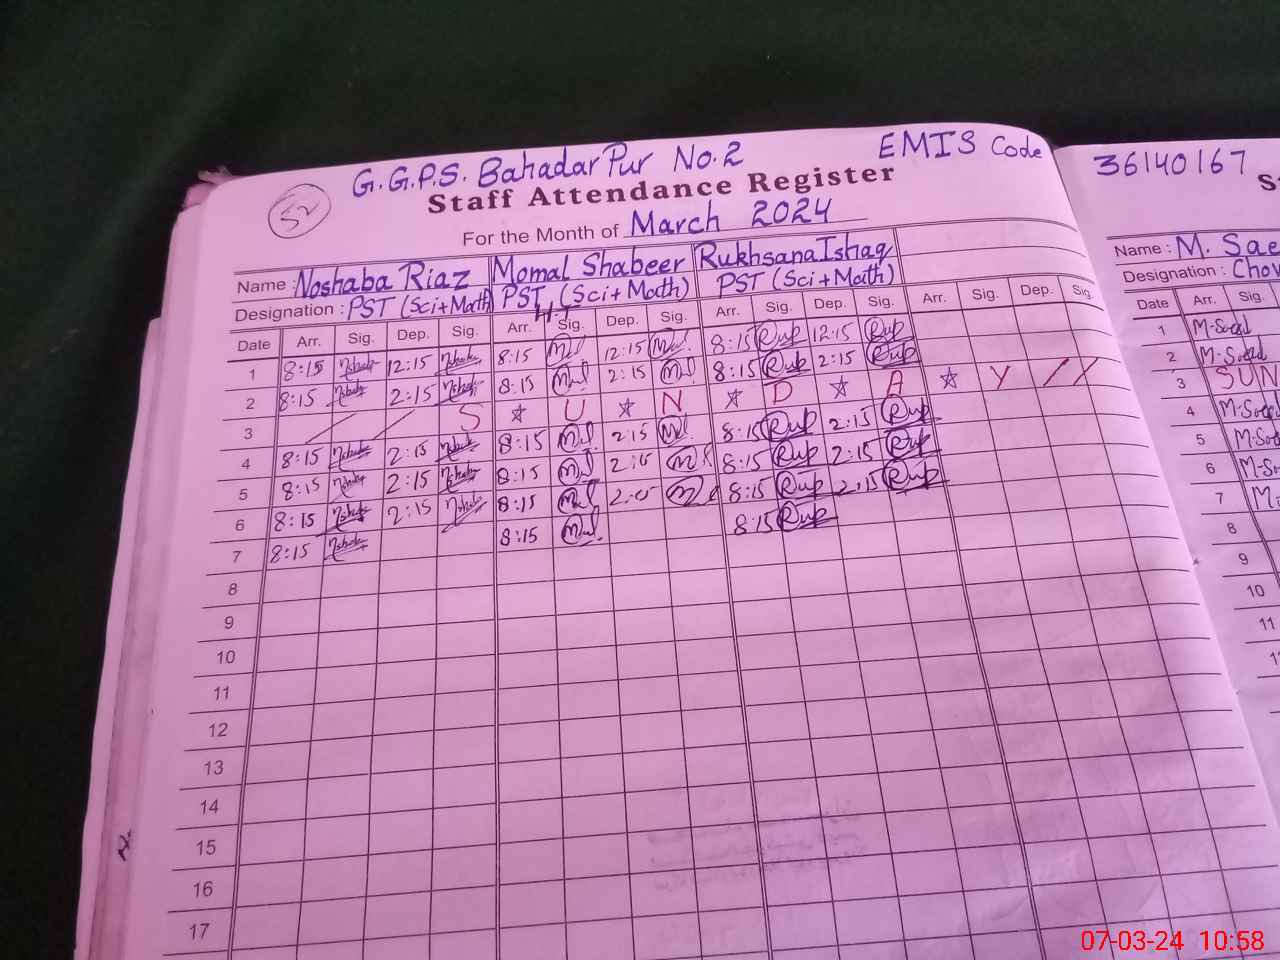 52
G.G.P.S. Bahadar Pur No.2 EMIS Code 36140167
Staff Attendance Register
For the Month of March 2024
Name : Noshaba Riaz Momal Shabeer Rukhsana Ishaq
Designation : PST (Sci+Math) PST (Sci+Math) PST (Sci+Math)
H.T
Date Arr. Sig. Dep. Sig. Arr. Sig. Dep. Sig. Arr. Sig. Dep. Sig. Arr. Sig. Dep. Sig.
1 8:15 12:15 8:15 12:15 8:15 Rup 12:15 Rup
2 8:15 2:15 8:15 2:15 8:15 Rup 2:15 Rup
3 S ☆ U ☆ N ☆ D ☆ A ☆ Y
4 8:15 2:15 8:15 2:15 8:15 Rup 2:15 Rup
5 8:15 2:15 8:15 2:15 8:15 Rup 2:15 Rup
6 8:15 2:15 8:15 2:15 8:15 Rup 2:15 Rup
7 8:15 8:15 8:15 Rup
8
9
10
11
12
13
14
15
16
17
Name : M. Sae
Designation : Chow
Date Arr. Sig.
1 M-Saeed
2 M-Saeed
3 SUN
4 M-Saeed
5
6
7
8
9
10
11
07-03-24 10:58